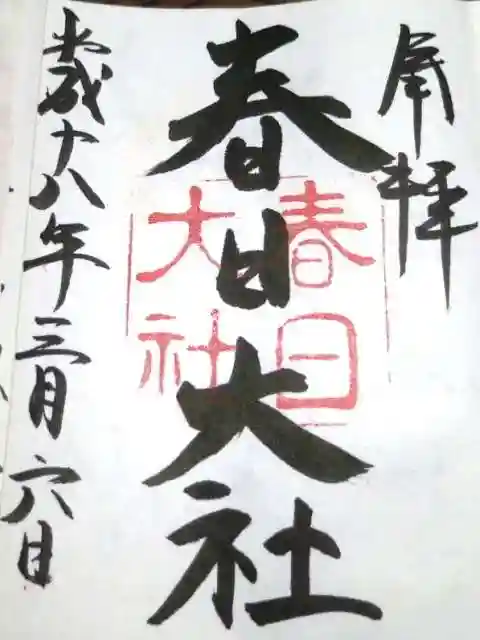 奉拝
春日大社
春日大社
平成十八年三月六日